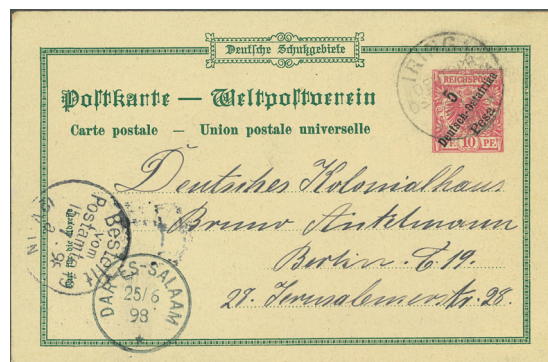 Deutsche Schutzgebiete
Postkarte — Weltpostverein
Carte postale — Union postale universelle
REICHSPOST
5
Deutsch-Ostafrika
Pesa
10 PF
IRINGA
Deutsches Kolonialhaus
Bruno Antelmann
Berlin. C. 19.
28. Jerusalemerstr. 28.
Bestellt
vom
Postamte
DAR-ES-SALAAM
25/6
98